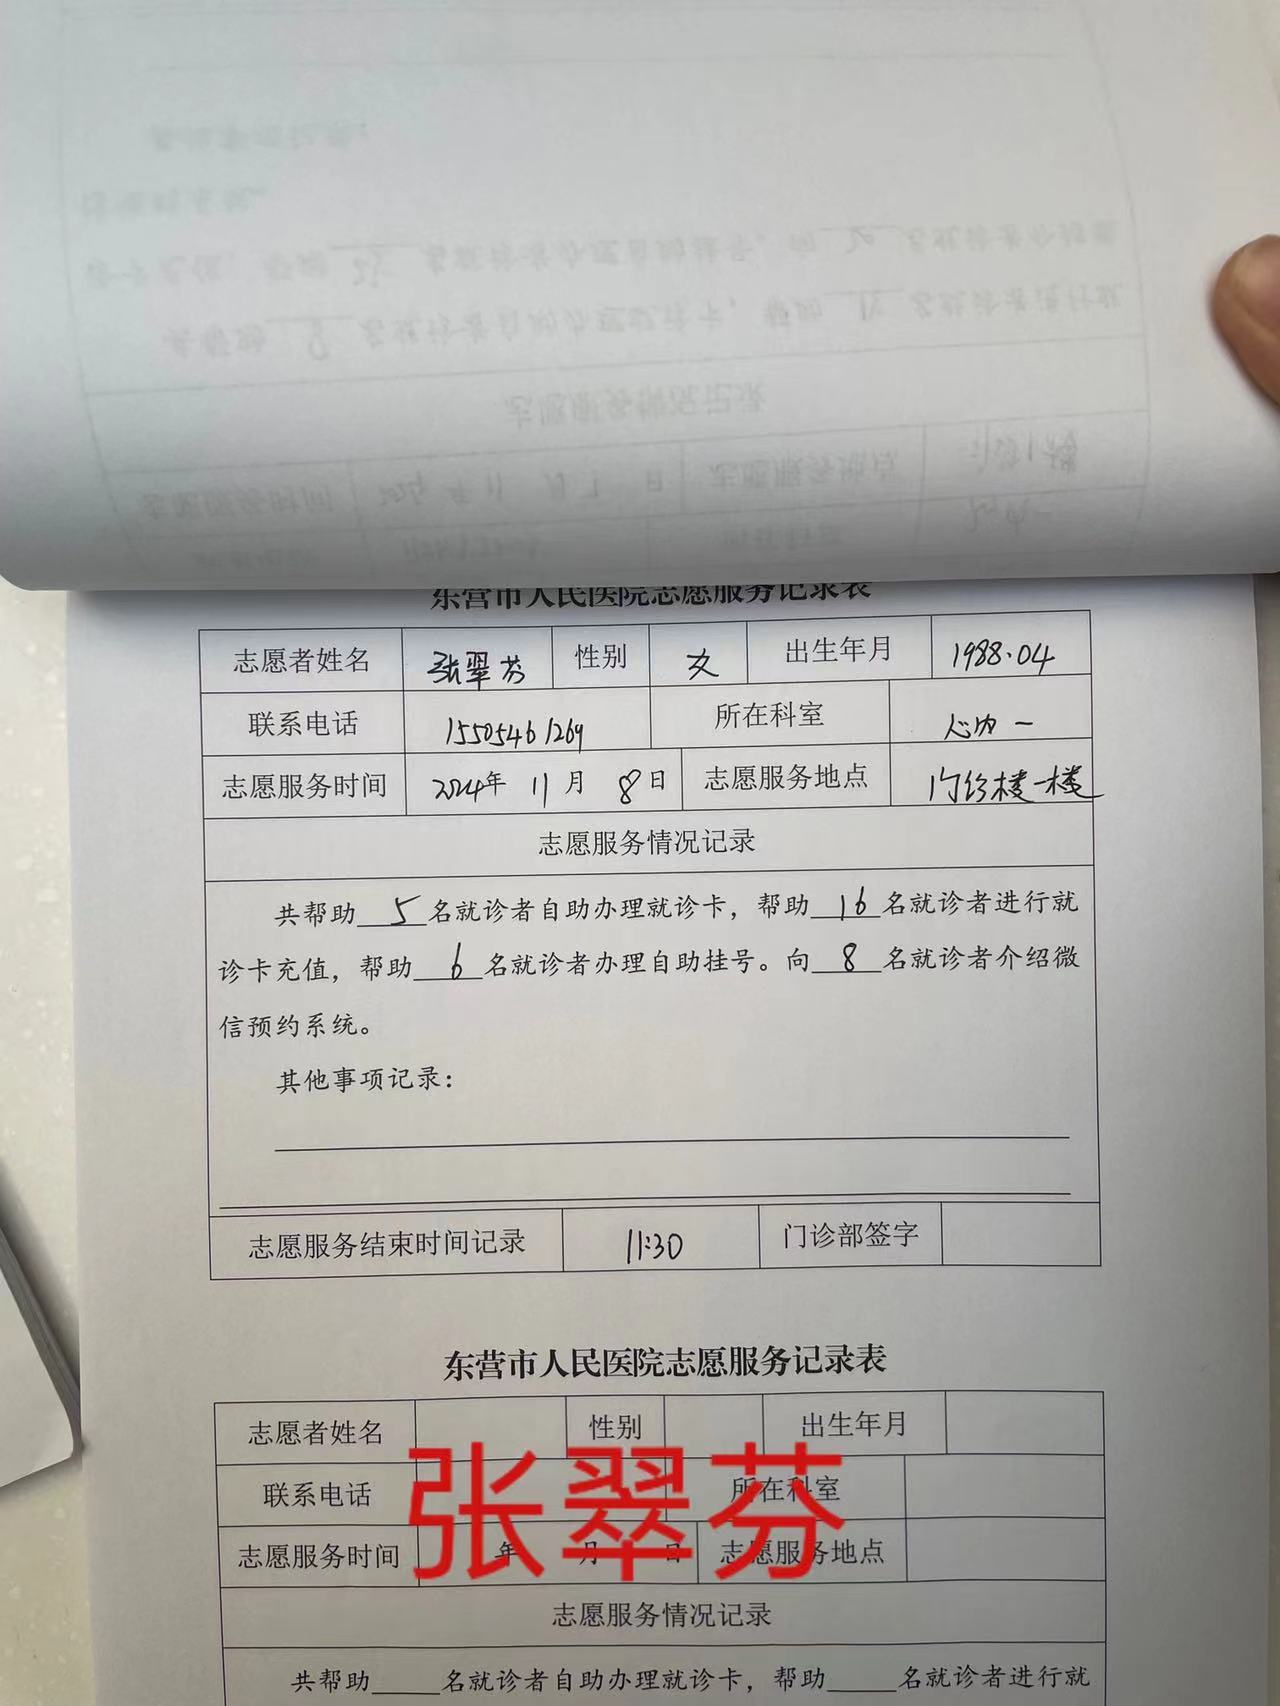 东营市人民医院志愿服务记录表
志愿者姓名 张翠芬 性别 女 出生年月 1988.04
联系电话 15505461269 所在科室 心内一
志愿服务时间 2024年 11月 8日 志愿服务地点 门诊楼一楼
志愿服务情况记录
共帮助 5 名就诊者自助办理就诊卡，帮助 16 名就诊者进行就
诊卡充值，帮助 6 名就诊者办理自助挂号。向 8 名就诊者介绍微
信预约系统。
其他事项记录：
志愿服务结束时间记录 11:30 门诊部签字
东营市人民医院志愿服务记录表
志愿者姓名 性别 出生年月
联系电话 所在科室
张翠芬
志愿服务时间 年 月 日 志愿服务地点
志愿服务情况记录
共帮助_____名就诊者自助办理就诊卡，帮助_____名就诊者进行就